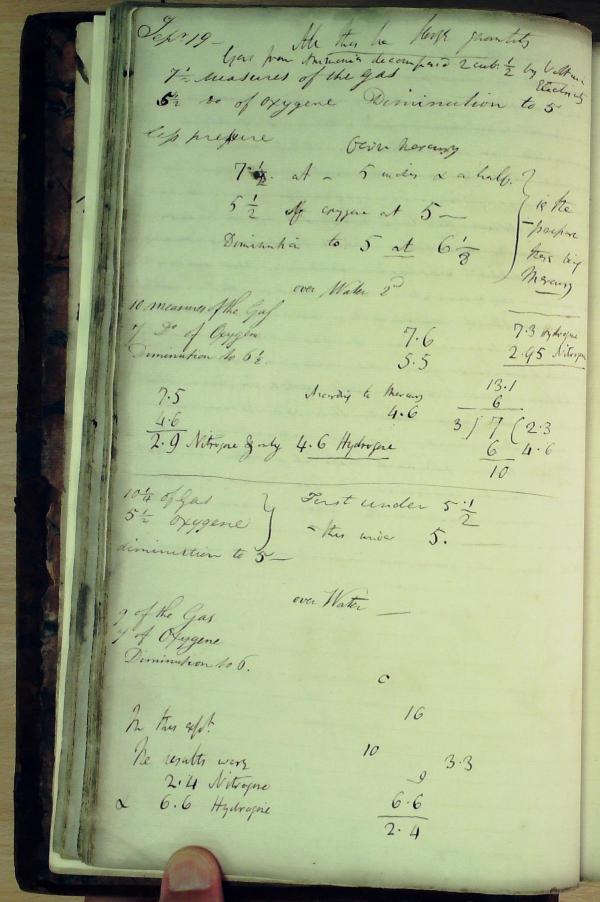 Sepr 19 -
Gas from Ammonia decomposed 2 cub: 1/2 by Voltaic Electricity
7 1/2 measures of the gas
5 1/2 do of oxygene Diminution to 5
less pressure
Over Mercury
7 1/2 at - 5 inches & a half.
5 1/2 of oxygene at 5 -
Diminution to 5 at 6 1/8
is the
pressure
here being
Mercury
over Water 2d
10 measures of the Gas
7 Do of Oxygen 7.6 7.3 Hydrogene
Diminution to 6 1/2 5.5 2.95 Nitrogene
13.1
7.5 According to Mercury 6
4.6 4.6 3 ) 7 ( 2.3
2.9 Nitrogene & only 4.6 Hydrogene 6 4.6
10
10 1/4 of Gas First under 5 1/2
5 1/2 oxygene this under 5.
diminution to 5 -
over Water -
9 of the Gas
7 of Oxygene
Diminution to 6.
16
In this expt.
The results were 10 3.3
2.4 Nitrogene 9
& 6.6 Hydrogene 6.6
2.4